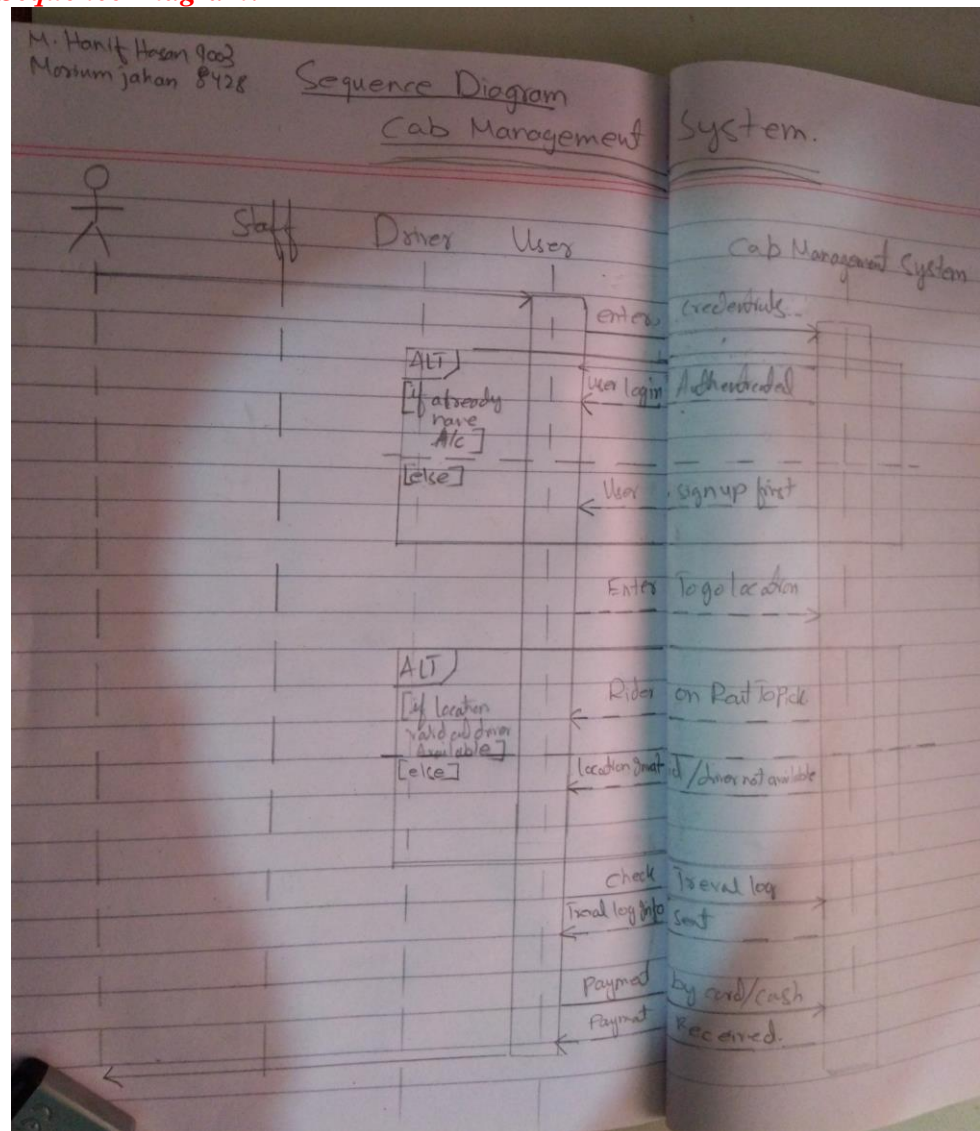 Sequence Diagram:
M. Hanif Hasan 9003
Mariumjahan 8428
Sequence Diagram
Cab Management System.
Staff
Driver
User
Cab Management System
enter credentials
ALT
[if already
have
A/c]
User login Authenticated
[else]
User signup first
Enter To go location
ALT
[if location
valid and driver
Available]
Rider on Rout To Pick
[else]
location / driver not available
Check Treval log
Traval log Info sent
Payment by card/cash
Payment Received.